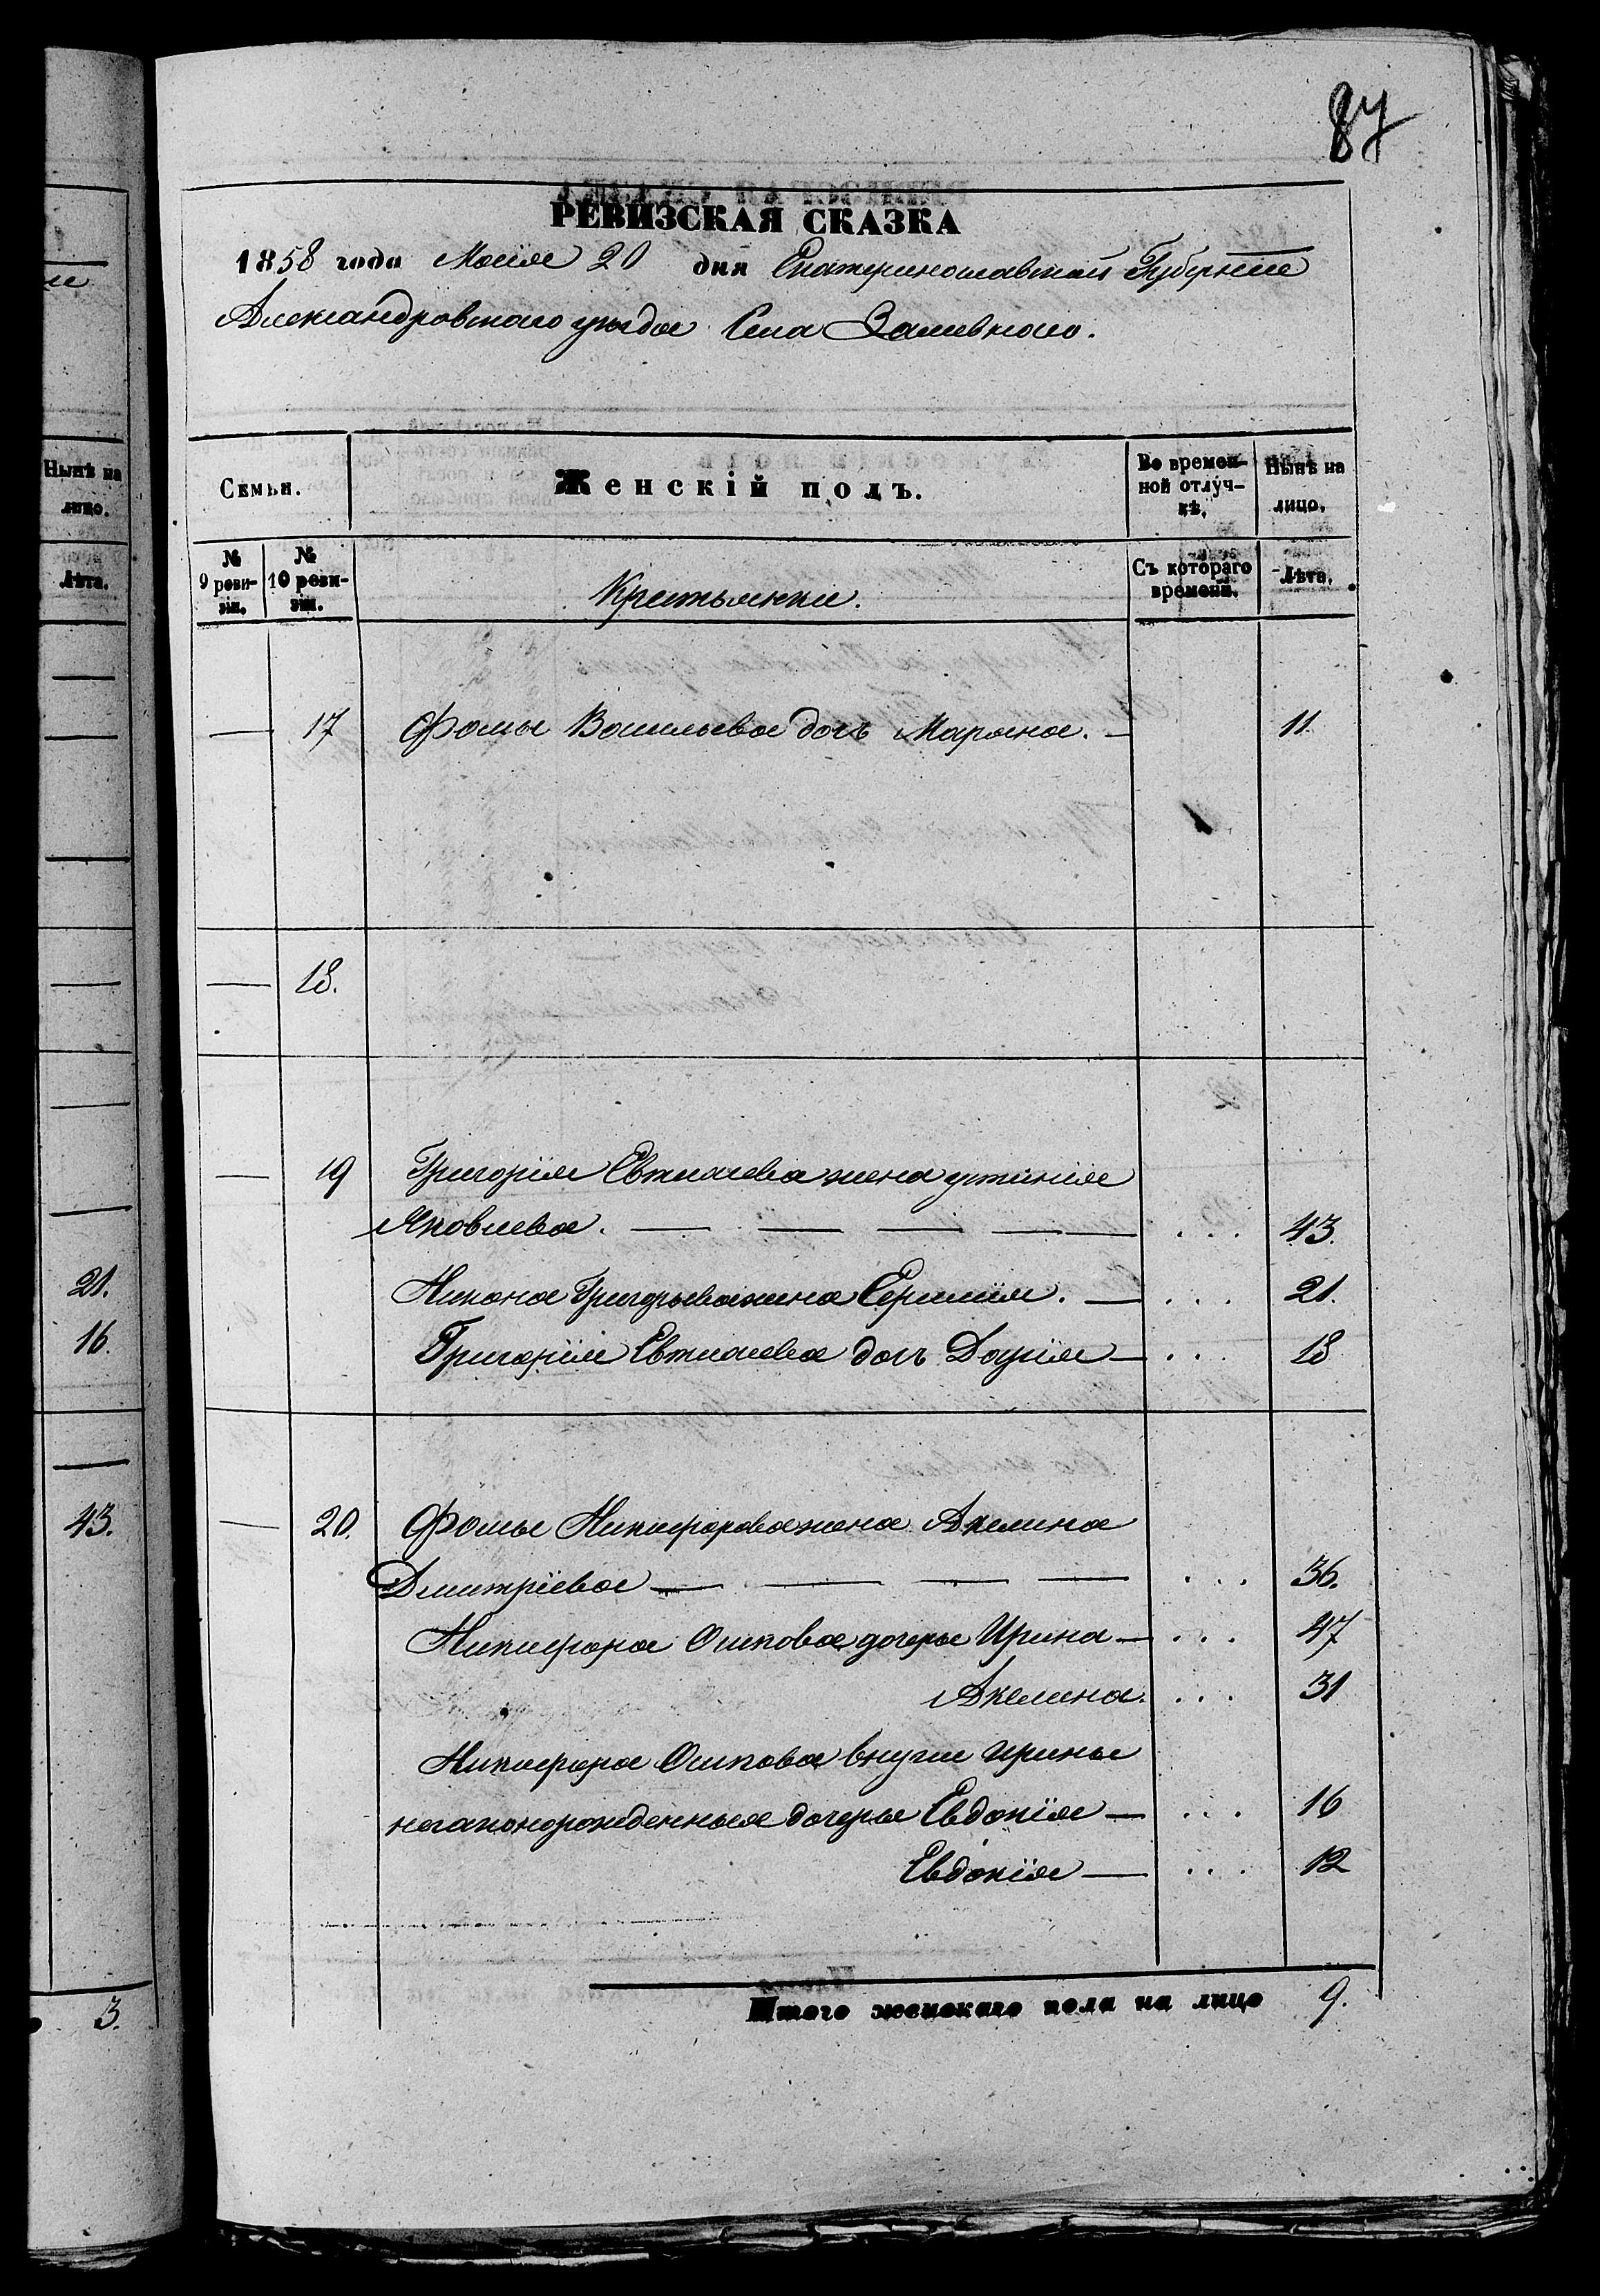 87
РЕВИЗСКАЯ СКАЗКА
1858 года Маія 20 дня Екатеринославской Губерніи
Александровскаго уѣзда Села Заливнаго.
Семьи.
Женскій полъ.
Во времен-
ной отлуч-
кѣ.
Нынѣ на
лицо.
№
9 реви-
зіи.
№
10 реви-
зіи.
Крестьянки.
Съ котораго
времени.
Лѣта.
— 17 Фомы Васильева дочь Марина. — 11.
— 18.
— 19 Григорія Евтиѳіева жена
Яковлева. — — — — . . . 43.
Никона Григорьева жена . — . . . 21.
Григорія Евтиѳіева дочь Дарія — . . . 18
— 20. Фомы Никифорова жена Акелина
Дмитріева — — — — . . . 36.
Никифора Осипова дочери Ирина — . . . 47
Акелина. . . . 31
Никифора Осипова внуки Ирины
незаконорожденныя дочери Евдокія — . . . 16
Евдокія — . . . 12
Итого женскаго пола на лицо 9.
Нынѣ на
лицо.
Лѣта.
21.
16.
43.
3.